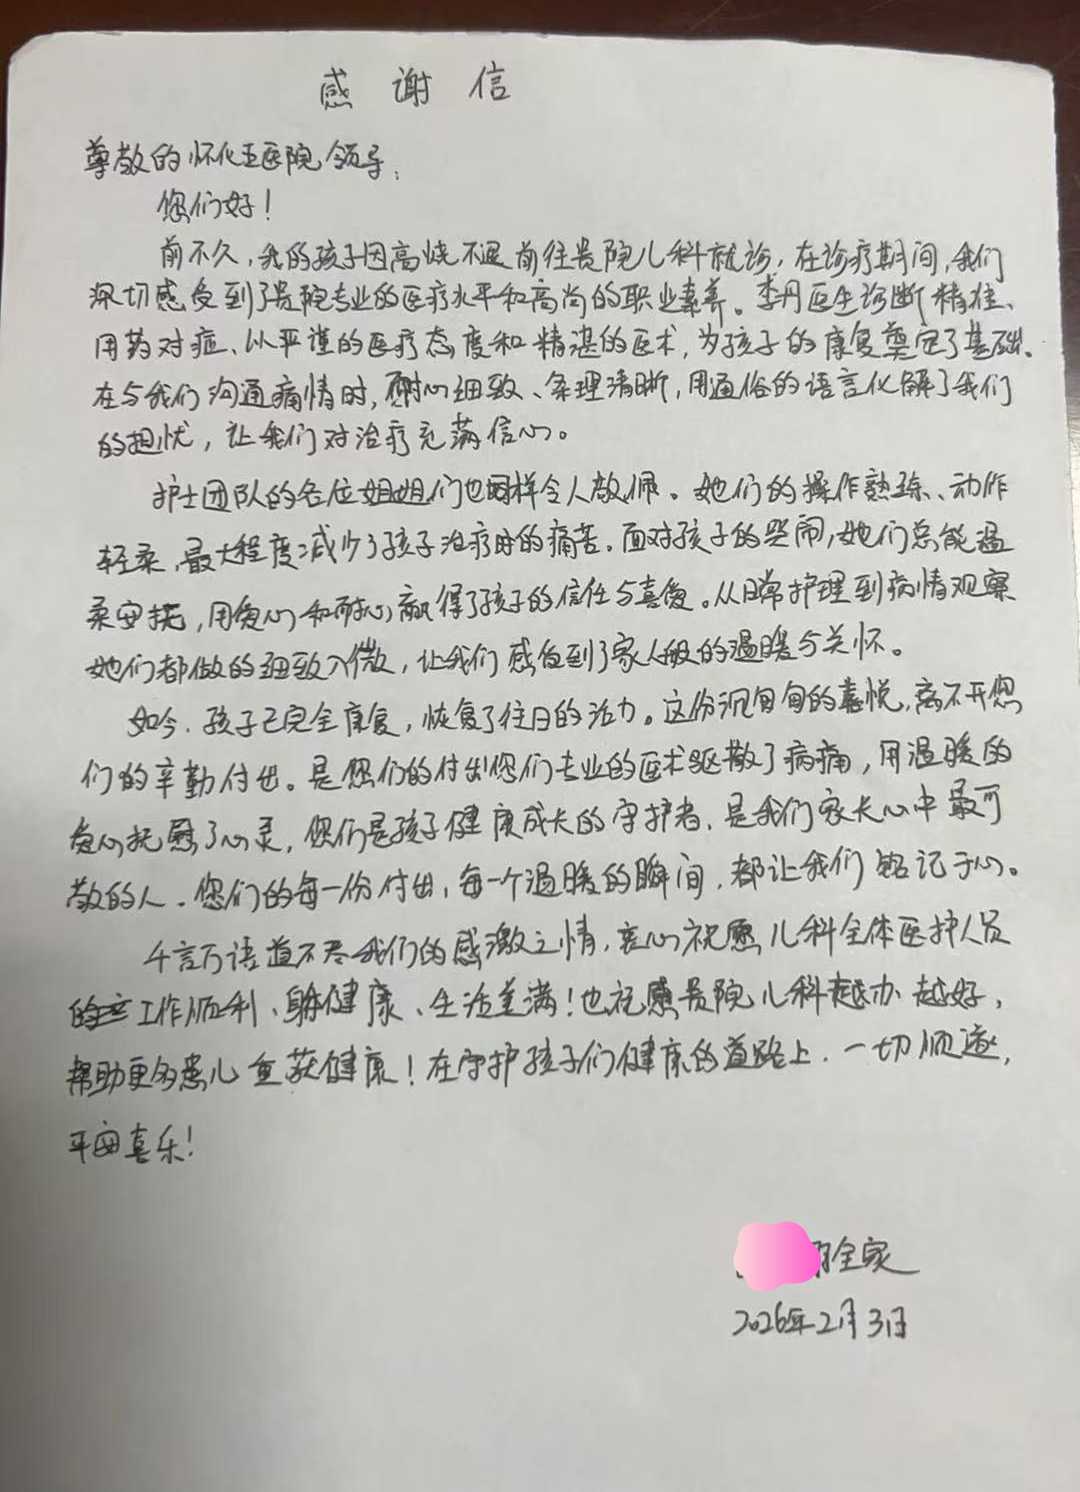 感谢信
尊敬的怀化五医院领导:
您们好!
前不久,我的孩子因高烧不退前往贵院儿科就诊,在诊疗期间,我们
深切感受到了贵院专业的医疗水平和高尚的职业素养。李丹医生诊断精准、
用药对症、以严谨的医疗态度和精湛的医术,为孩子的康复奠定了基础。
在与我们沟通病情时,耐心细致、条理清晰,用通俗的语言化解了我们
的担忧,让我们对治疗充满信心。
护士团队的各位姐姐们也同样令人敬佩。她们的操作熟练、动作
轻柔,最大程度减少了孩子治疗时的痛苦。面对孩子的哭闹,她们总能温
柔安抚,用爱心和耐心赢得了孩子的信任与喜爱。从日常护理到病情观察
她们都做的细致入微,让我们感受到了家人般的温暖与关怀。
如今,孩子已完全康复,恢复了往日的活力。这份沉甸甸的喜悦,离不开您
们的辛勤付出。是您们的付出您们专业的医术驱散了病痛,用温暖的
爱心抚慰了心灵,您们是孩子健康成长的守护者,是我们家长心中最可
敬的人。您们的每一份付出,每一个温暖的瞬间,都让我们铭记于心。
千言万语道不尽我们的感激之情,衷心祝愿儿科全体医护人员
的工作顺利、身体健康、生活美满!也祝愿贵院儿科越办越好,
帮助更多患儿重获健康!在守护孩子们健康的道路上,一切顺遂,
平安喜乐!
全家
2026年2月3日